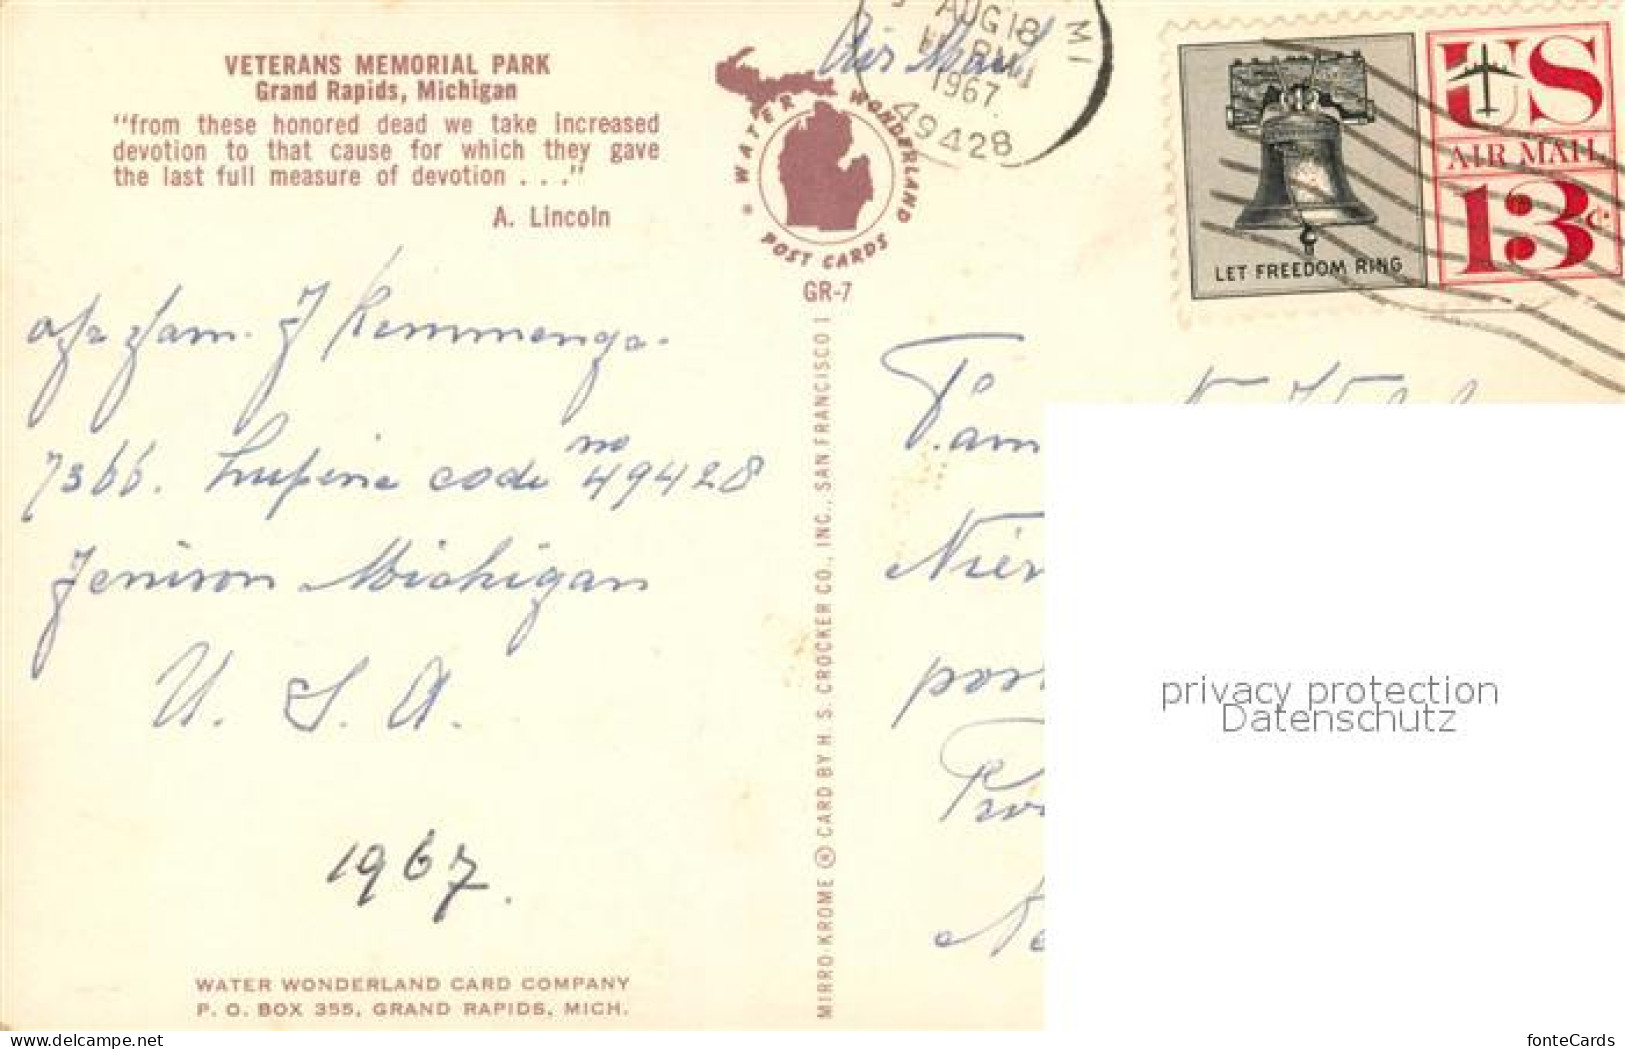 VETERANS MEMORIAL PARK
Grand Rapids, Michigan
"from these honored dead we take increased
devotion to that cause for which they gave
the last full measure of devotion . . ."
A. Lincoln
WATER WONDERLAND
POST CARDS
GR-7
Air Mail
AUG 18
1967
MI
49428
US
AIR MAIL
13c
LET FREEDOM RING
afz fam. J Remmenga.
7366. Lupine code no 49428
Jenison Michigan
U. S. A.
1967.
WATER WONDERLAND CARD COMPANY
P. O. BOX 355, GRAND RAPIDS, MICH.
MIRRO-KROME ® CARD BY H. S. CROCKER CO., INC., SAN FRANCISCO 1
Fam
privacy protection
Datenschutz
www.delcampe.net
fonteCards